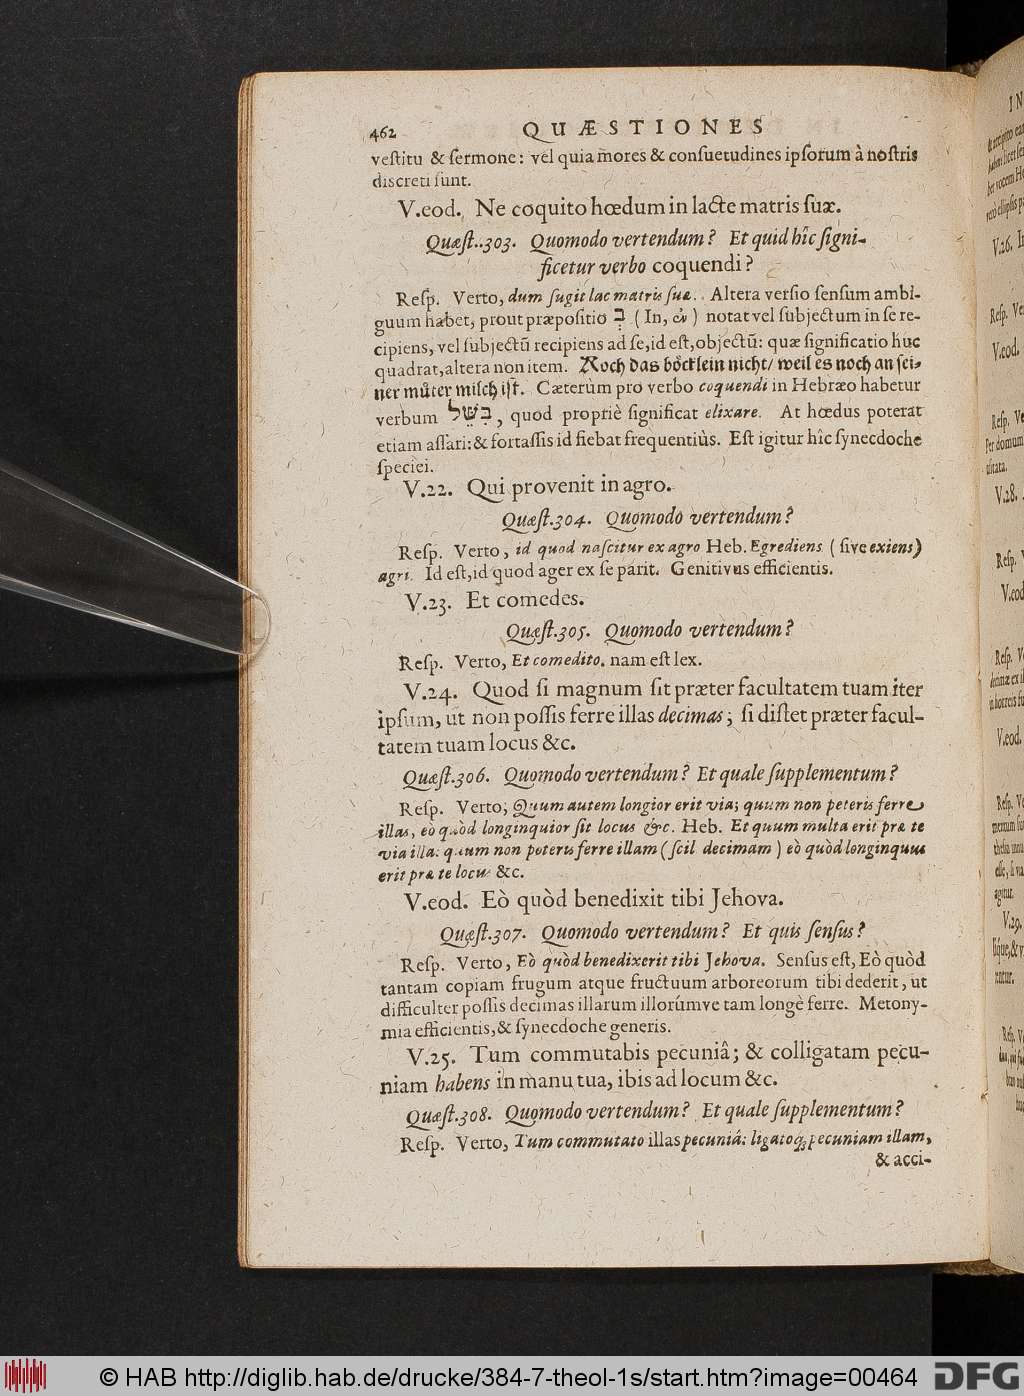 462 QUÆSTIONES
veſtitu & ſermone: vel quia mores & conſuetudines ipſorum à noſtris
diſcreti ſunt.
V.eod. Ne coquito hœdum in lacte matris ſuæ.
Quæſt..303. Quomodo vertendum? Et quid hîc ſigni-
ficetur verbo coquendi?
Reſp. Verto, dum ſugit lac matris ſuæ. Altera verſio ſenſum ambi-
guum habet, prout præpoſitio בְּ (In, ἐν) notat vel ſubjectum in ſe re-
cipiens, vel ſubjectũ recipiens ad ſe, id eſt, objectũ: quæ ſignificatio huc
quadrat, altera non item. Koch das böcklein nicht/ weil es noch an ſei-
ner můter milch iſt. Cæterùm pro verbo coquendi in Hebræo habetur
verbum בִּשֵּׁל, quod propriè ſignificat elixare. At hœdus poterat
etiam aſſari: & fortaſſis id fiebat frequentiùs. Eſt igitur hîc ſynecdoche
ſpeciei.
V.22. Qui provenit in agro.
Quæſt.304. Quomodo vertendum?
Reſp. Verto, id quod naſcitur ex agro Heb. Egrediens (ſive exiens)
agri. Id eſt, id quod ager ex ſe parit. Genitivus efficientis.
V.23. Et comedes.
Quæſt.305. Quomodo vertendum?
Reſp. Verto, Et comedito. nam eſt lex.
V.24. Quod ſi magnum ſit præter facultatem tuam iter
ipſum, ut non poſſis ferre illas decimas; ſi diſtet præter facul-
tatem tuam locus &c.
Quæſt.306. Quomodo vertendum? Et quale ſupplementum?
Reſp. Verto, Quum autem longior erit via; quum non poteris ferre
illas, eò quòd longinquior ſit locus &c. Heb. Et quum multa erit præ te
via illa: quum non poteris ferre illam (ſcil decimam) eò quòd longinquus
erit præ te locus &c.
V.eod. Eò quòd benedixit tibi Jehova.
Quæſt.307. Quomodo vertendum? Et quis ſenſus?
Reſp. Verto, Eò quòd benedixerit tibi Jehova. Senſus eſt, Eò quòd
tantam copiam frugum atque fructuum arboreorum tibi dederit, ut
difficulter poſſis decimas illarum illorúmve tam longè ferre. Metony-
mia efficientis, & ſynecdoche generis.
V.25. Tum commutabis pecuniâ; & colligatam pecu-
niam habens in manu tua, ibis ad locum &c.
Quæſt.308. Quomodo vertendum? Et quale ſupplementum?
Reſp. Verto, Tum commutato illas pecuniâ: ligatoq; pecuniam illam,
& acci-
© HAB http://diglib.hab.de/drucke/384-7-theol-1s/start.htm?image=00464
DFG